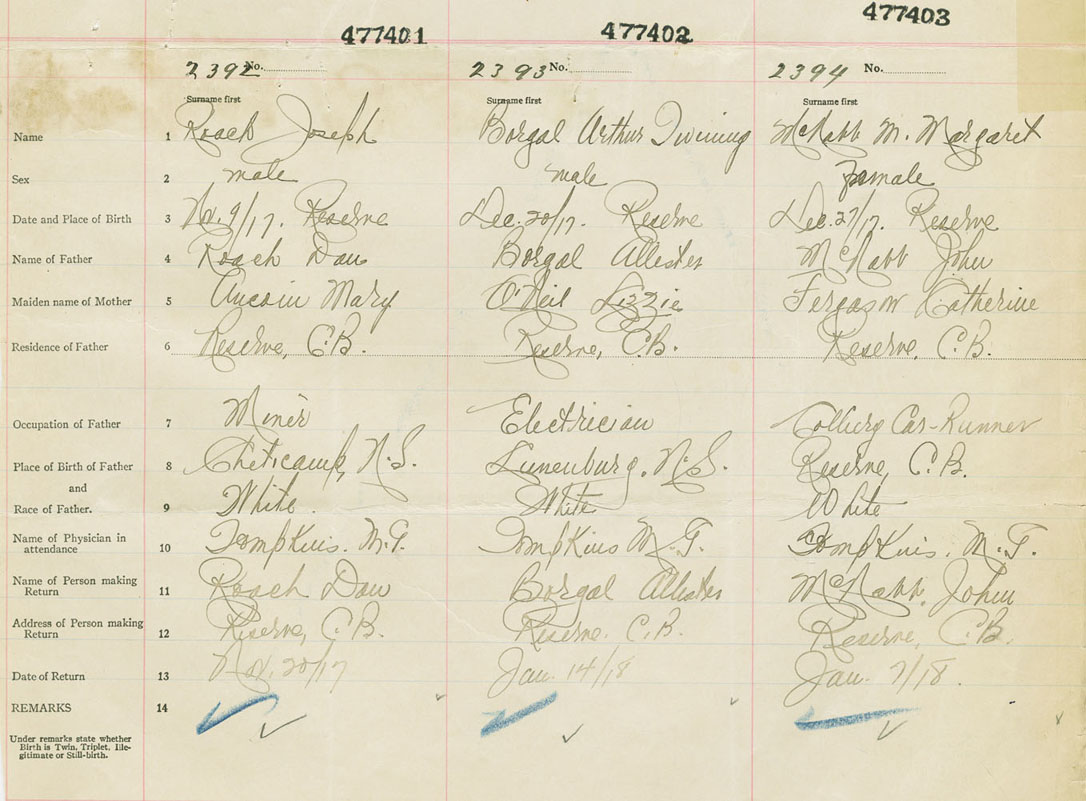 477401 477402 477403
2392 No. 2393 No. 2394 No.
Surname first Surname first Surname first
Name 1 Roach Joseph Borgal Arthur Twining McNabb M. Margaret
Sex 2 male male Female
Date and Place of Birth 3 Nov. 9/17. Reserve Dec. 20/17. Reserve Dec. 27/17. Reserve
Name of Father 4 Roach Dan Borgal Allister McNabb John
Maiden name of Mother 5 Aucoin Mary O'Neil Lizzie Ferguson Catherine
Residence of Father 6 Reserve, C.B. Reserve, C.B. Reserve, C.B.
Occupation of Father 7 Miner Electrician Colliery Car-Runner
Place of Birth of Father 8 Cheticamp, N.S. Lunenburg, N.S. Reserve, C.B.
and
Race of Father. 9 White. White White
Name of Physician in
attendance 10 Tompkins. M.T. Tompkins M.T. Tompkins. M.T.
Name of Person making
Return 11 Roach Dan Borgal Allister McNabb, John
Address of Person making
Return 12 Reserve, C.B. Reserve. C.B. Reserve, C.B.
Date of Return 13 Nov. 20/17 Jan. 14/18 Jan. 7/18.
REMARKS 14
Under remarks state whether
Birth is Twin, Triplet, Ille-
gitimate or Still-birth.